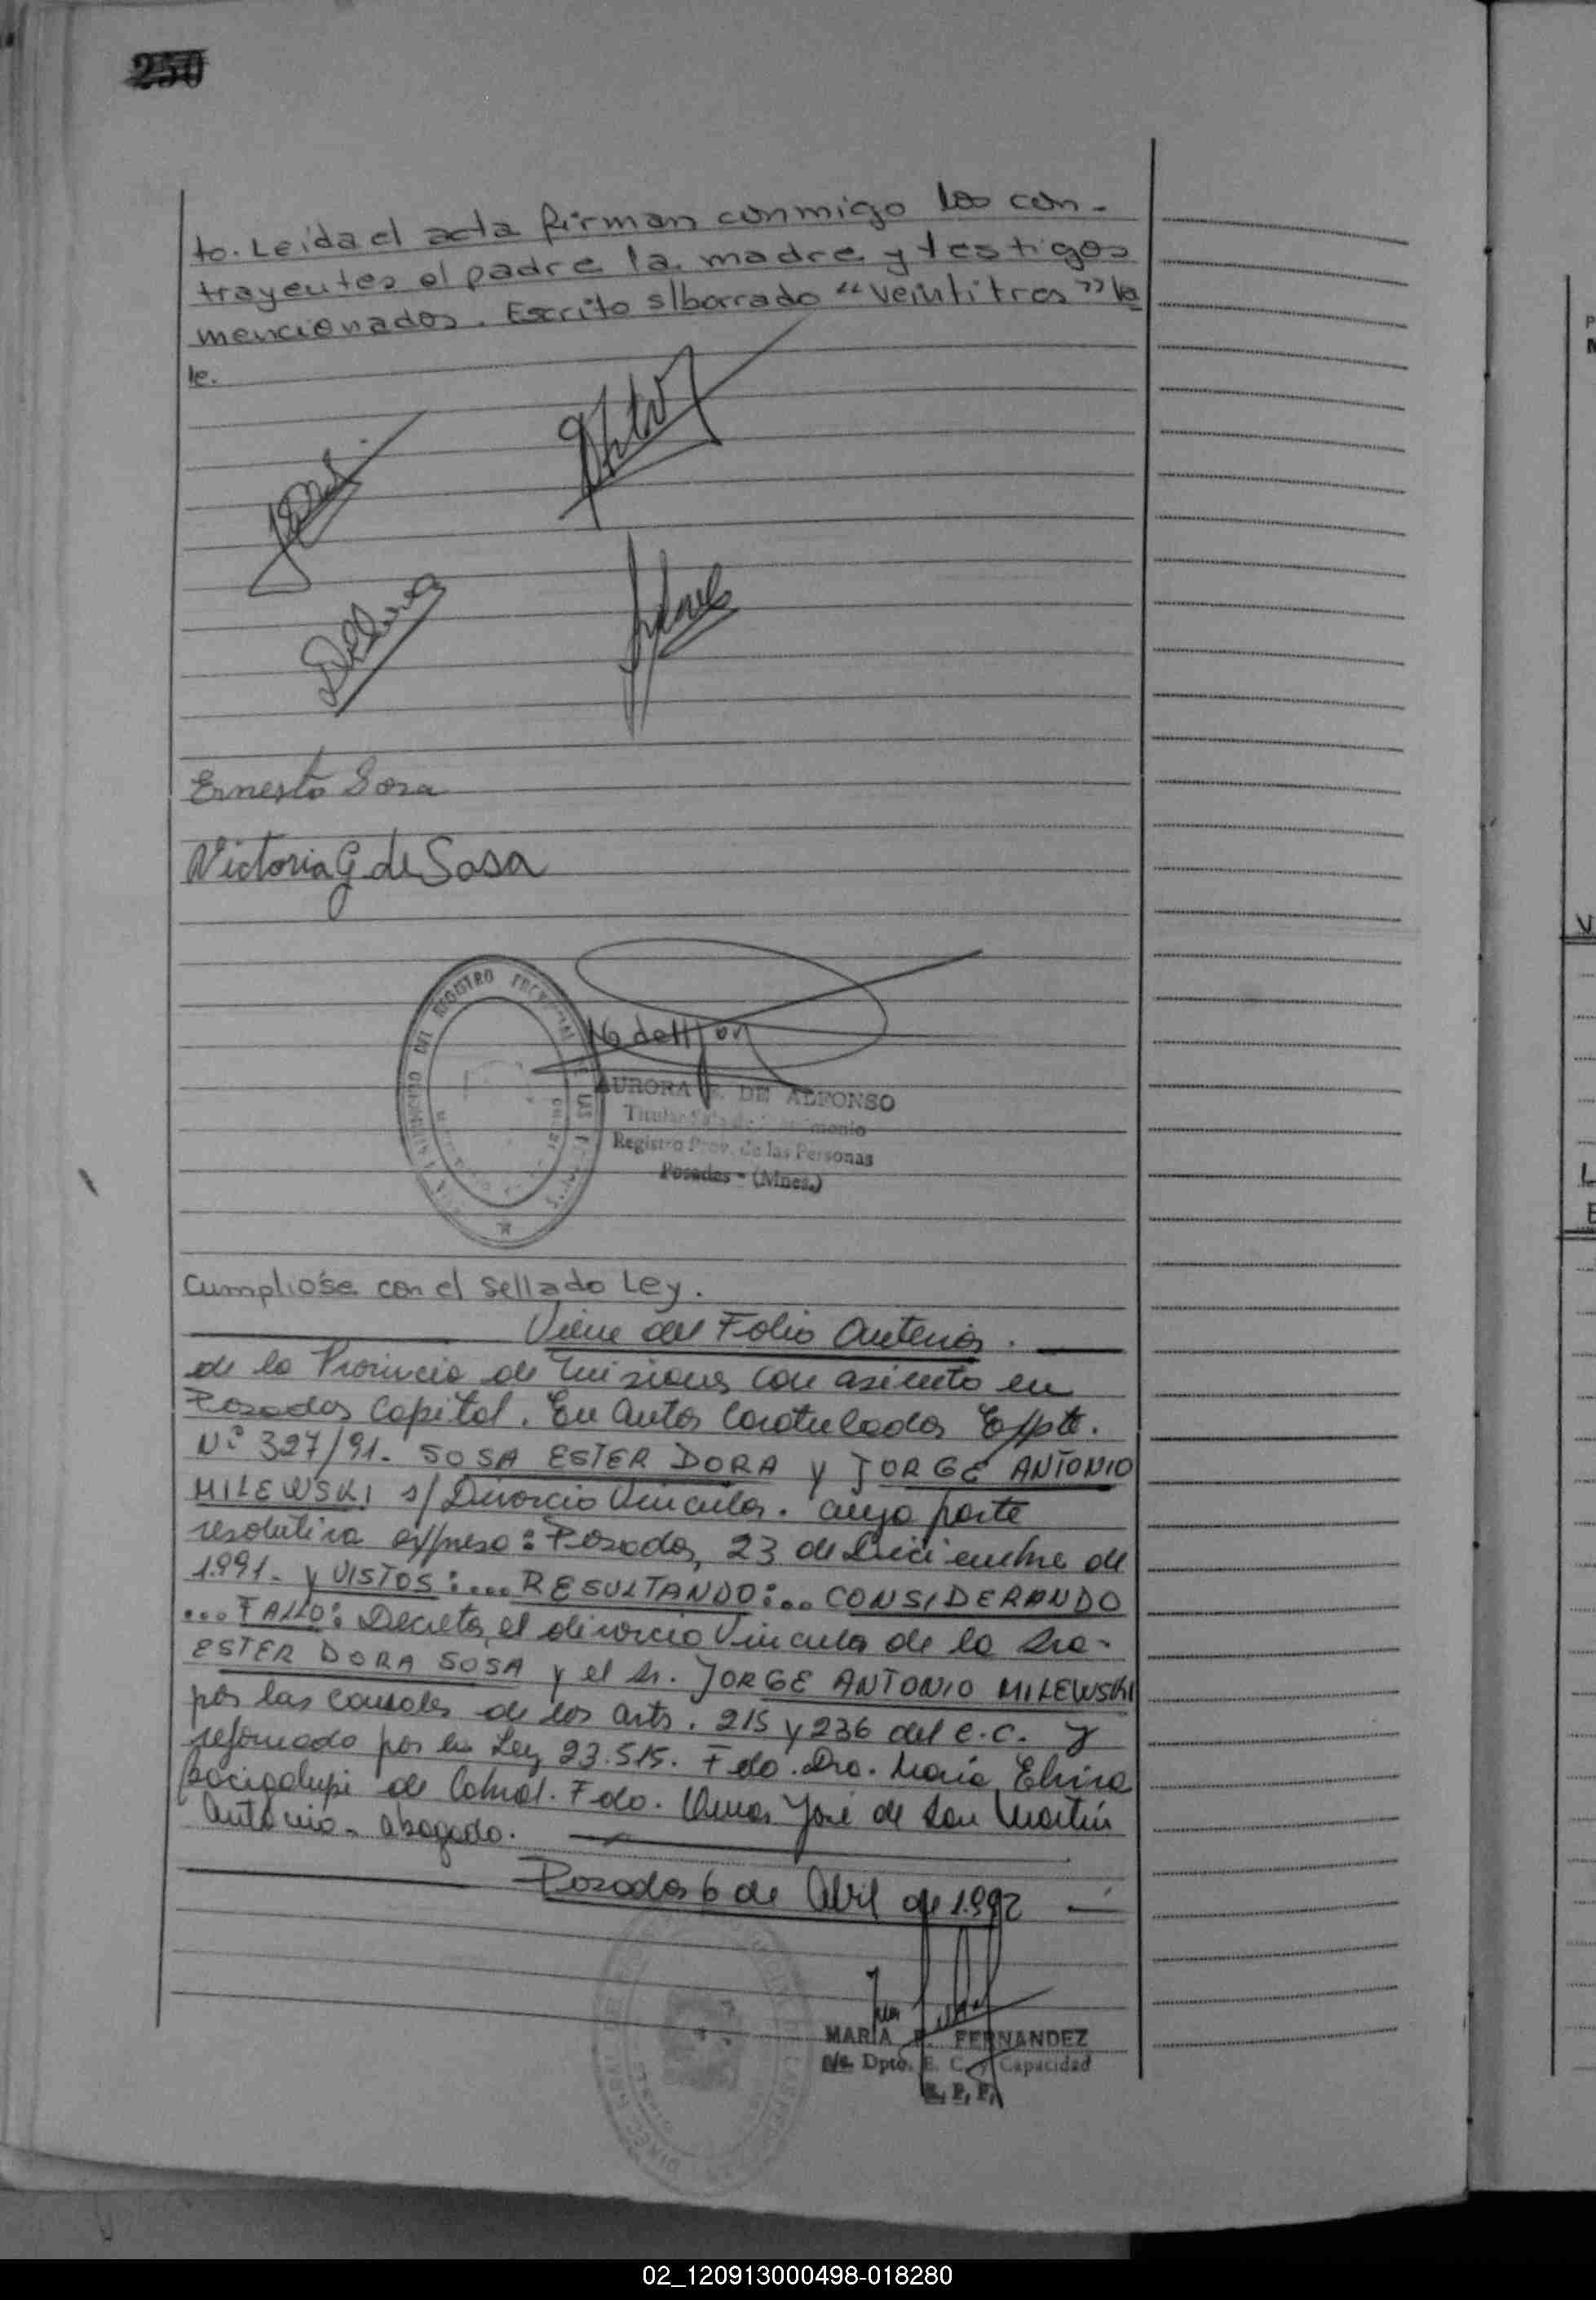 250
to. Leida el acta firman conmigo los con-
trayentes el padre la madre y testigos
mencionados. Escrito s/borrado "veintitres" Va
le.
Ernesto Sosa
Victoria G de Sosa
DEL REGISTRO PROVINCIAL DE LAS
AURORA DE ALFONSO
Titular Sala de Matrimonio
Registro Prov. de las Personas
Posadas - (Mnes.)
Cumplióse con el sellado Ley.
Viene del Folio Anterior.
de la Provincia de Misiones con asiento en
Posadas Capital. En autos Caratulados Expte.
Nº 327/91. SOSA ESTER DORA y JORGE ANTONIO
MILEWSKI s/ Divorcio Vincular. cuya parte
resolutiva expresa: Posadas, 23 de Diciembre de
1.991. y VISTOS:.... RESULTANDO:... CONSIDERANDO
... FALLO: Decretar el divorcio Vincular de la Sra.
ESTER DORA SOSA y el Sr. JORGE ANTONIO MILEWSKI
por las causales de los arts. 215 y 236 del C.C. y
reformado por la Ley 23.515. Fdo. Dra. María Elvira
Bacigalupi de Cabral. Fdo. José de San Martín
Antonio - abogado.
Posadas 6 de Abril de 1.992
MARIA FERNANDEZ
a/c. Dpto. E. C. y Capacidad
R. P. P.
02_120913000498-018280